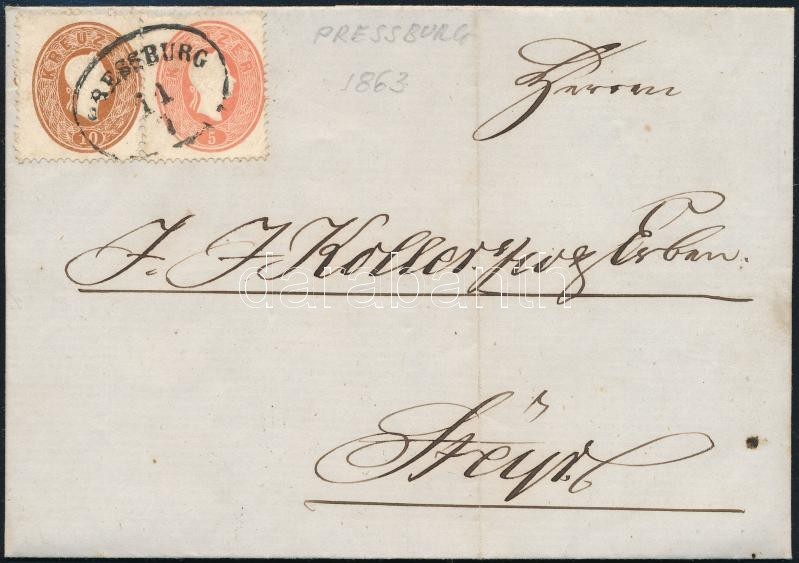 KREUZER
10
KREUZER
5
PRESSBURG
11
7
PRESSBURG
1863
Herren
J. J. Koller's Erben.
darabanth
Steyr